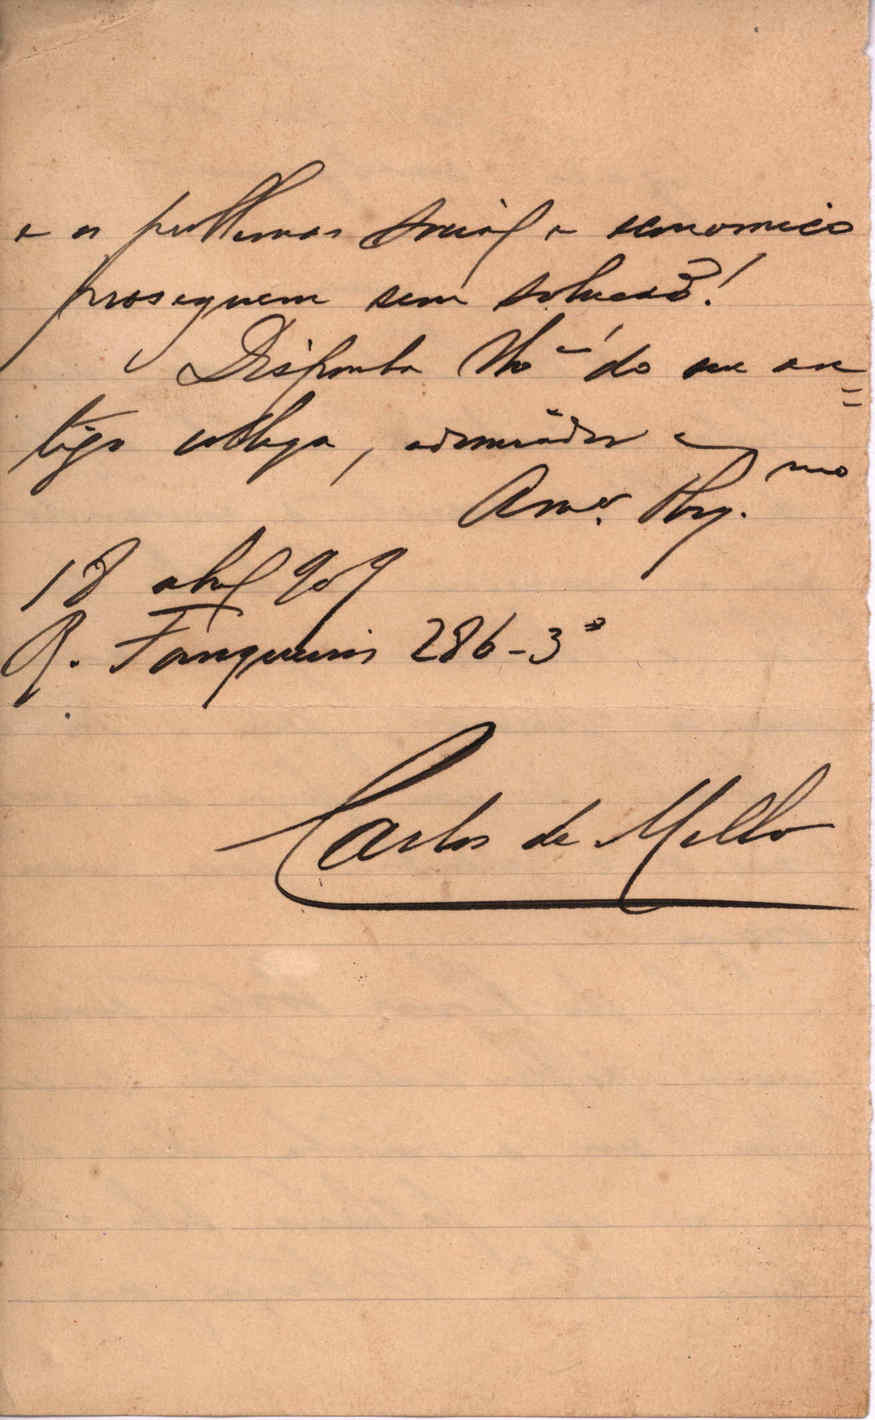 e os problemas social e economico
proseguem sem solucão!
Disponha do seu an=
tigo collega, admirador e
Amº. Obg.mo
18 abril 909
R. Fanqueiros 286-3º
Carlos de Mello